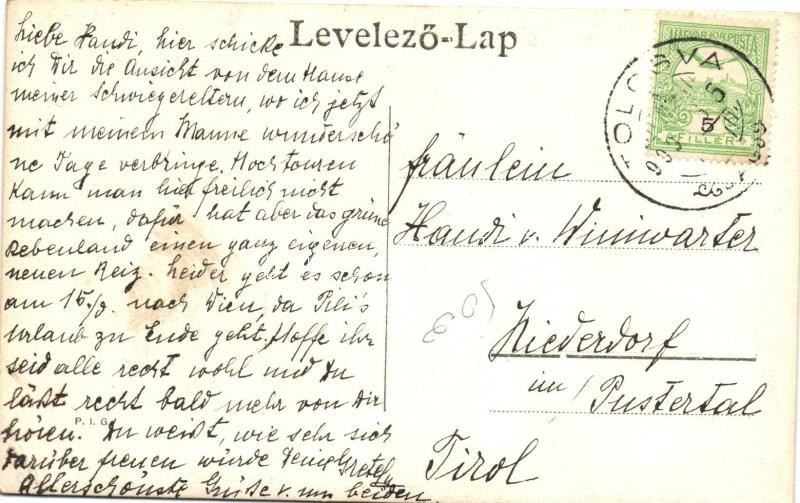 Levelező-Lap
Liebe Handi, hier schicke
ich Dir die Ansicht von dem Hause
meiner Schwiegereltern, wo ich jetzt
mit meinem Manne wunderschö
ne Tage verbringe. Hochtouren
kann man hier freilich nicht
machen, dafür hat aber das grüne
Rebenland einen ganz eigenen,
neuen Reiz. Leider geht es schon
am 15./9. nach Wien, da Pili's
Urlaub zu Ende geht. Hoffe ihr
seid alle recht wohl und Du
läßt recht bald mehr von Dir
hören. Du weißt, wie sehr sich
darüber freuen würde Deine Gretel
Allerschönste Grüße v. uns beiden.
P. I. G.
MAGYAR KIR. POSTA
5
FILLÉR
TOLCSVA
Fräulein
Handi v. Winiwarter
Niederdorf
im Pustertal
Tirol